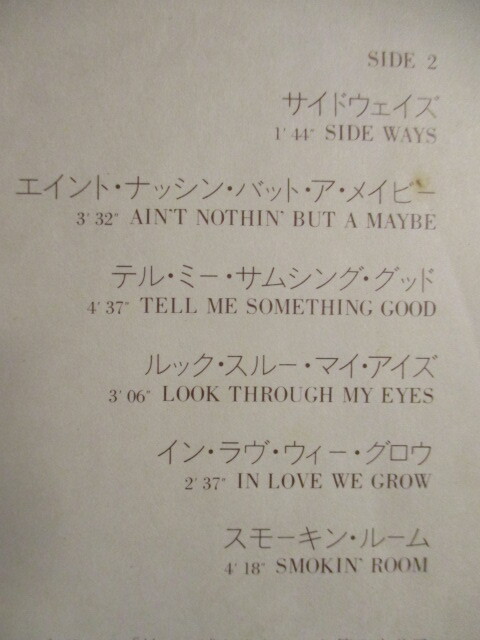 SIDE 2
サイドウェイズ
1′44″ SIDE WAYS
エイント・ナッシン・バット・ア・メイビー
3′32″ AIN'T NOTHIN' BUT A MAYBE
テル・ミー・サムシング・グッド
4′37″ TELL ME SOMETHING GOOD
ルック・スルー・マイ・アイズ
3′06″ LOOK THROUGH MY EYES
イン・ラヴ・ウィー・グロウ
2′37″ IN LOVE WE GROW
スモーキン・ルーム
4′18″ SMOKIN' ROOM